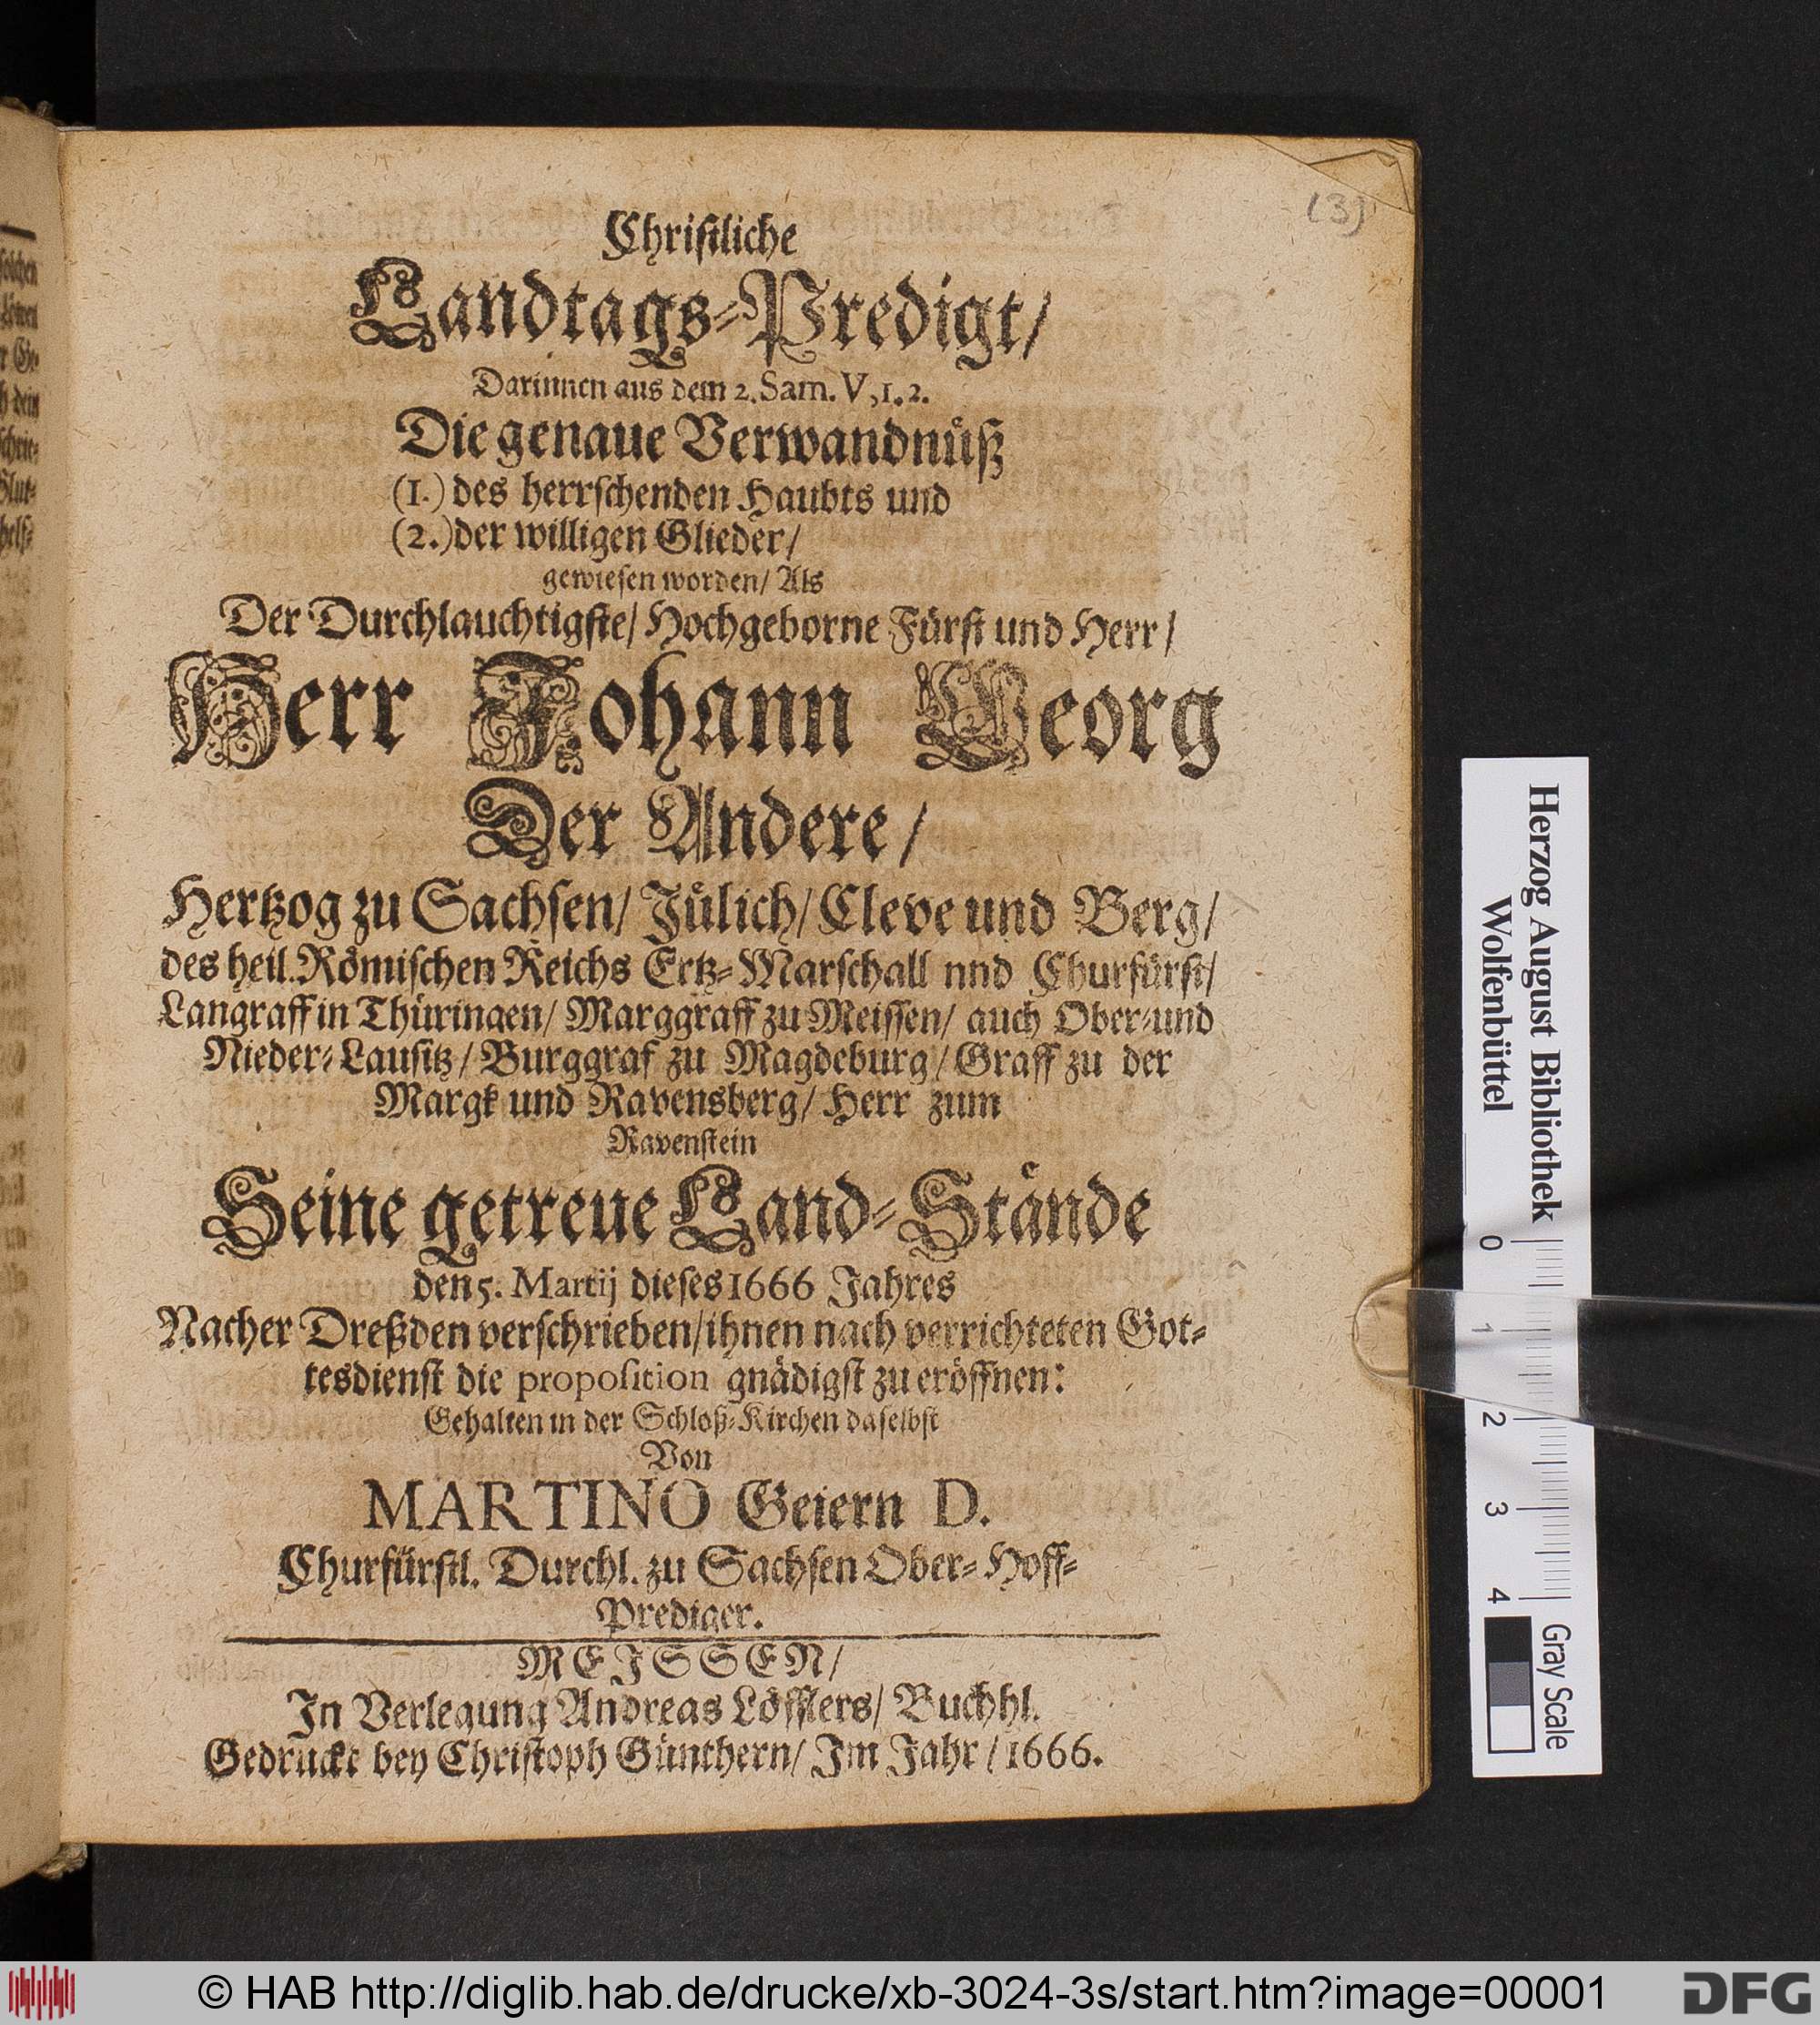 (3)
Christliche
Landtags-Predigt/
Darinnen aus dem 2. Sam. V, 1. 2.
Die genaue Verwandnüß
(1.) des herrschenden Haubts und
(2.) der willigen Glieder/
gewiesen worden/ Als
Der Durchlauchtigste/ Hochgeborne Fürst und Herr/
Herr Johann Georg
Der Andere/
Hertzog zu Sachsen/ Jülich/ Cleve und Berg/
des heil. Römischen Reichs Ertz-Marschall nnd Churfürst/
Langraff in Thüringen/ Marggraff zu Meissen/ auch Ober-und
Nieder-Lausitz/ Burggraf zu Magdeburg/ Graff zu der
Margk und Ravensberg/ Herr zum
Ravenstein
Seine getreue Land-Stände
den 5. Martij dieses 1666 Jahres
Nacher Dreßden verschrieben/ ihnen nach verrichteten Got-
tesdienst die proposition gnädigst zu eröffnen:
Gehalten in der Schloß-Kirchen daselbst
Von
MARTINO Geiern D.
Churfürstl. Durchl. zu Sachsen Ober-Hoff-
Prediger.
MEJSSEN/
In Verlegung Andreas Löfflers/ Buchhl.
Gedruckt bey Christoph Günthern/ Im Jahr/ 1666.
Herzog August Bibliothek
Wolfenbüttel
0
1
2
3
4
Gray Scale
© HAB http://diglib.hab.de/drucke/xb-3024-3s/start.htm?image=00001
DFG